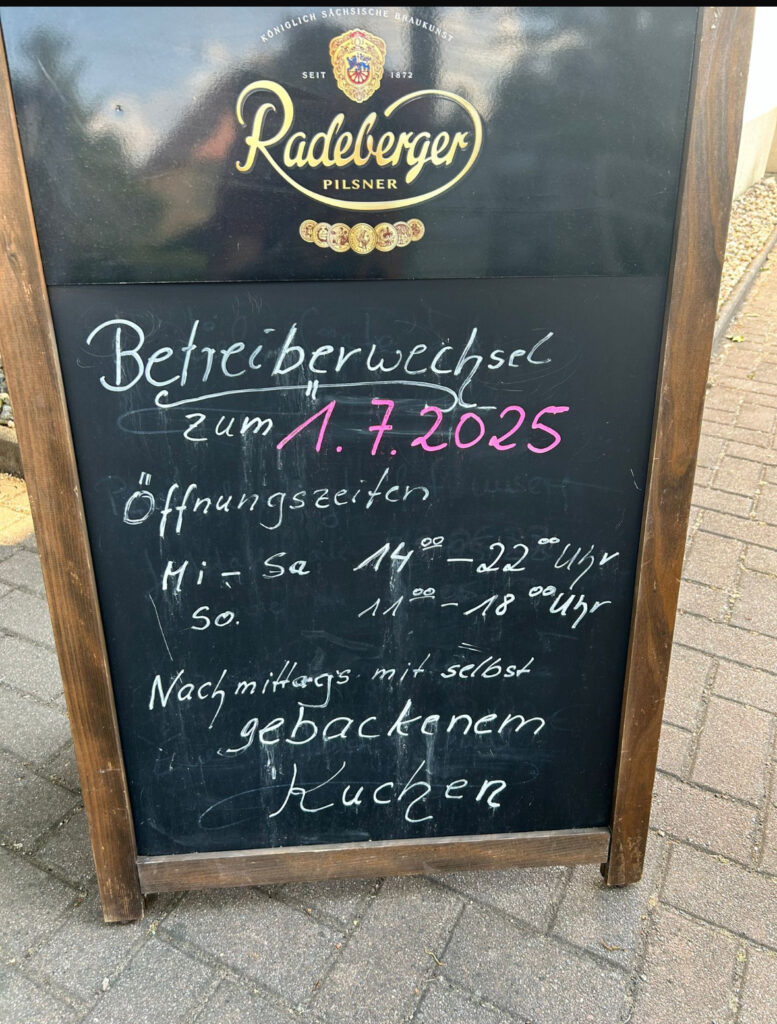 KÖNIGLICH SÄCHSISCHE BRAUKUNST
SEIT 1872
Radeberger
PILSNER
Betreiberwechsel
zum 1.7.2025
Öffnungszeiten
Mi - Sa 14 00 - 22 00 Uhr
So. 11 00 - 18 00 Uhr
Nachmittags mit selbst
gebackenem
Kuchen